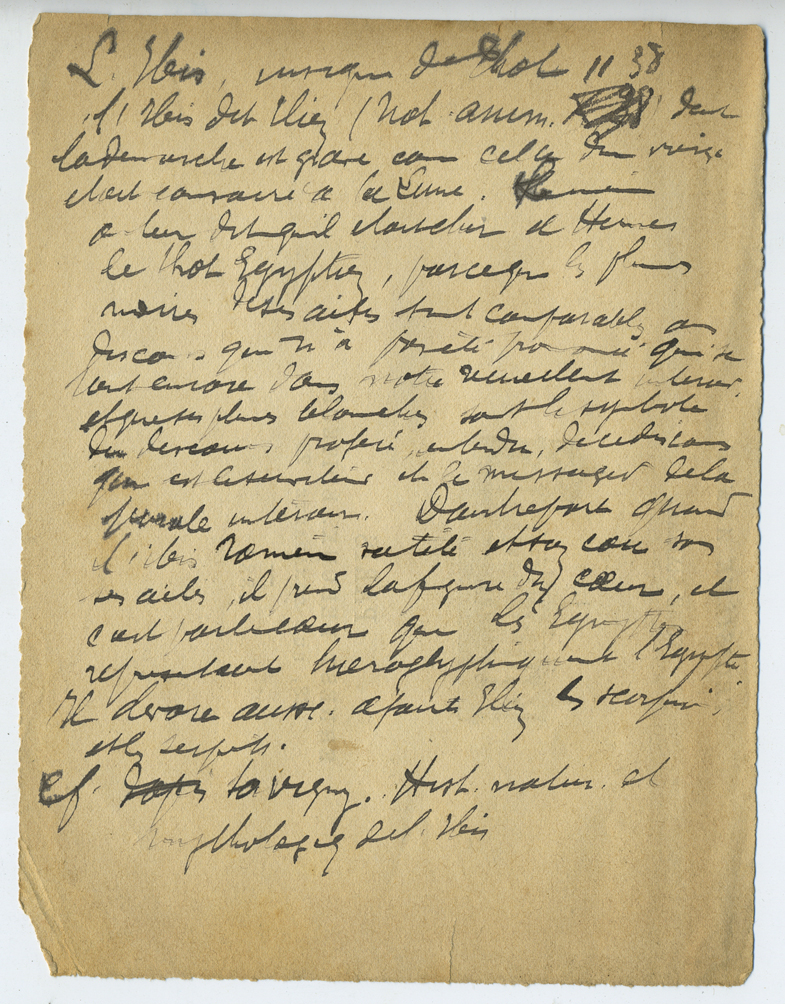 L'Ibis, de Thot II 38
L'Ibis dit Elien (Nat. anim. 38 dont
la demarche est grave com celle du vierge
etait consacré à la Lune.
a leur dit qu'il etait cher à Hermes
le Thot Egyptien, parceque les plumes
noires de ses ailes sont comparables au
discours qui n'a pas été prononcé qui se
tout encore dans notre interieur
et que ses plumes blanches sont le symbole
du discours proferé, entendu, de ce discours
qui est le serviteur et le messager de la
parole interieure. D'autre part quand
l'ibis ramene sa tête et son cou sous
ses ailes, il prend la figure du cœur, et
c'est par le cœur que les Egyptiens
representaient hieroglyphiquement l'Egypte
Il devore aussi. d'apres Elien les scorpions
et les serpents.
cf. Savigny. Hist. natur. et
mythologiq de l'Ibis